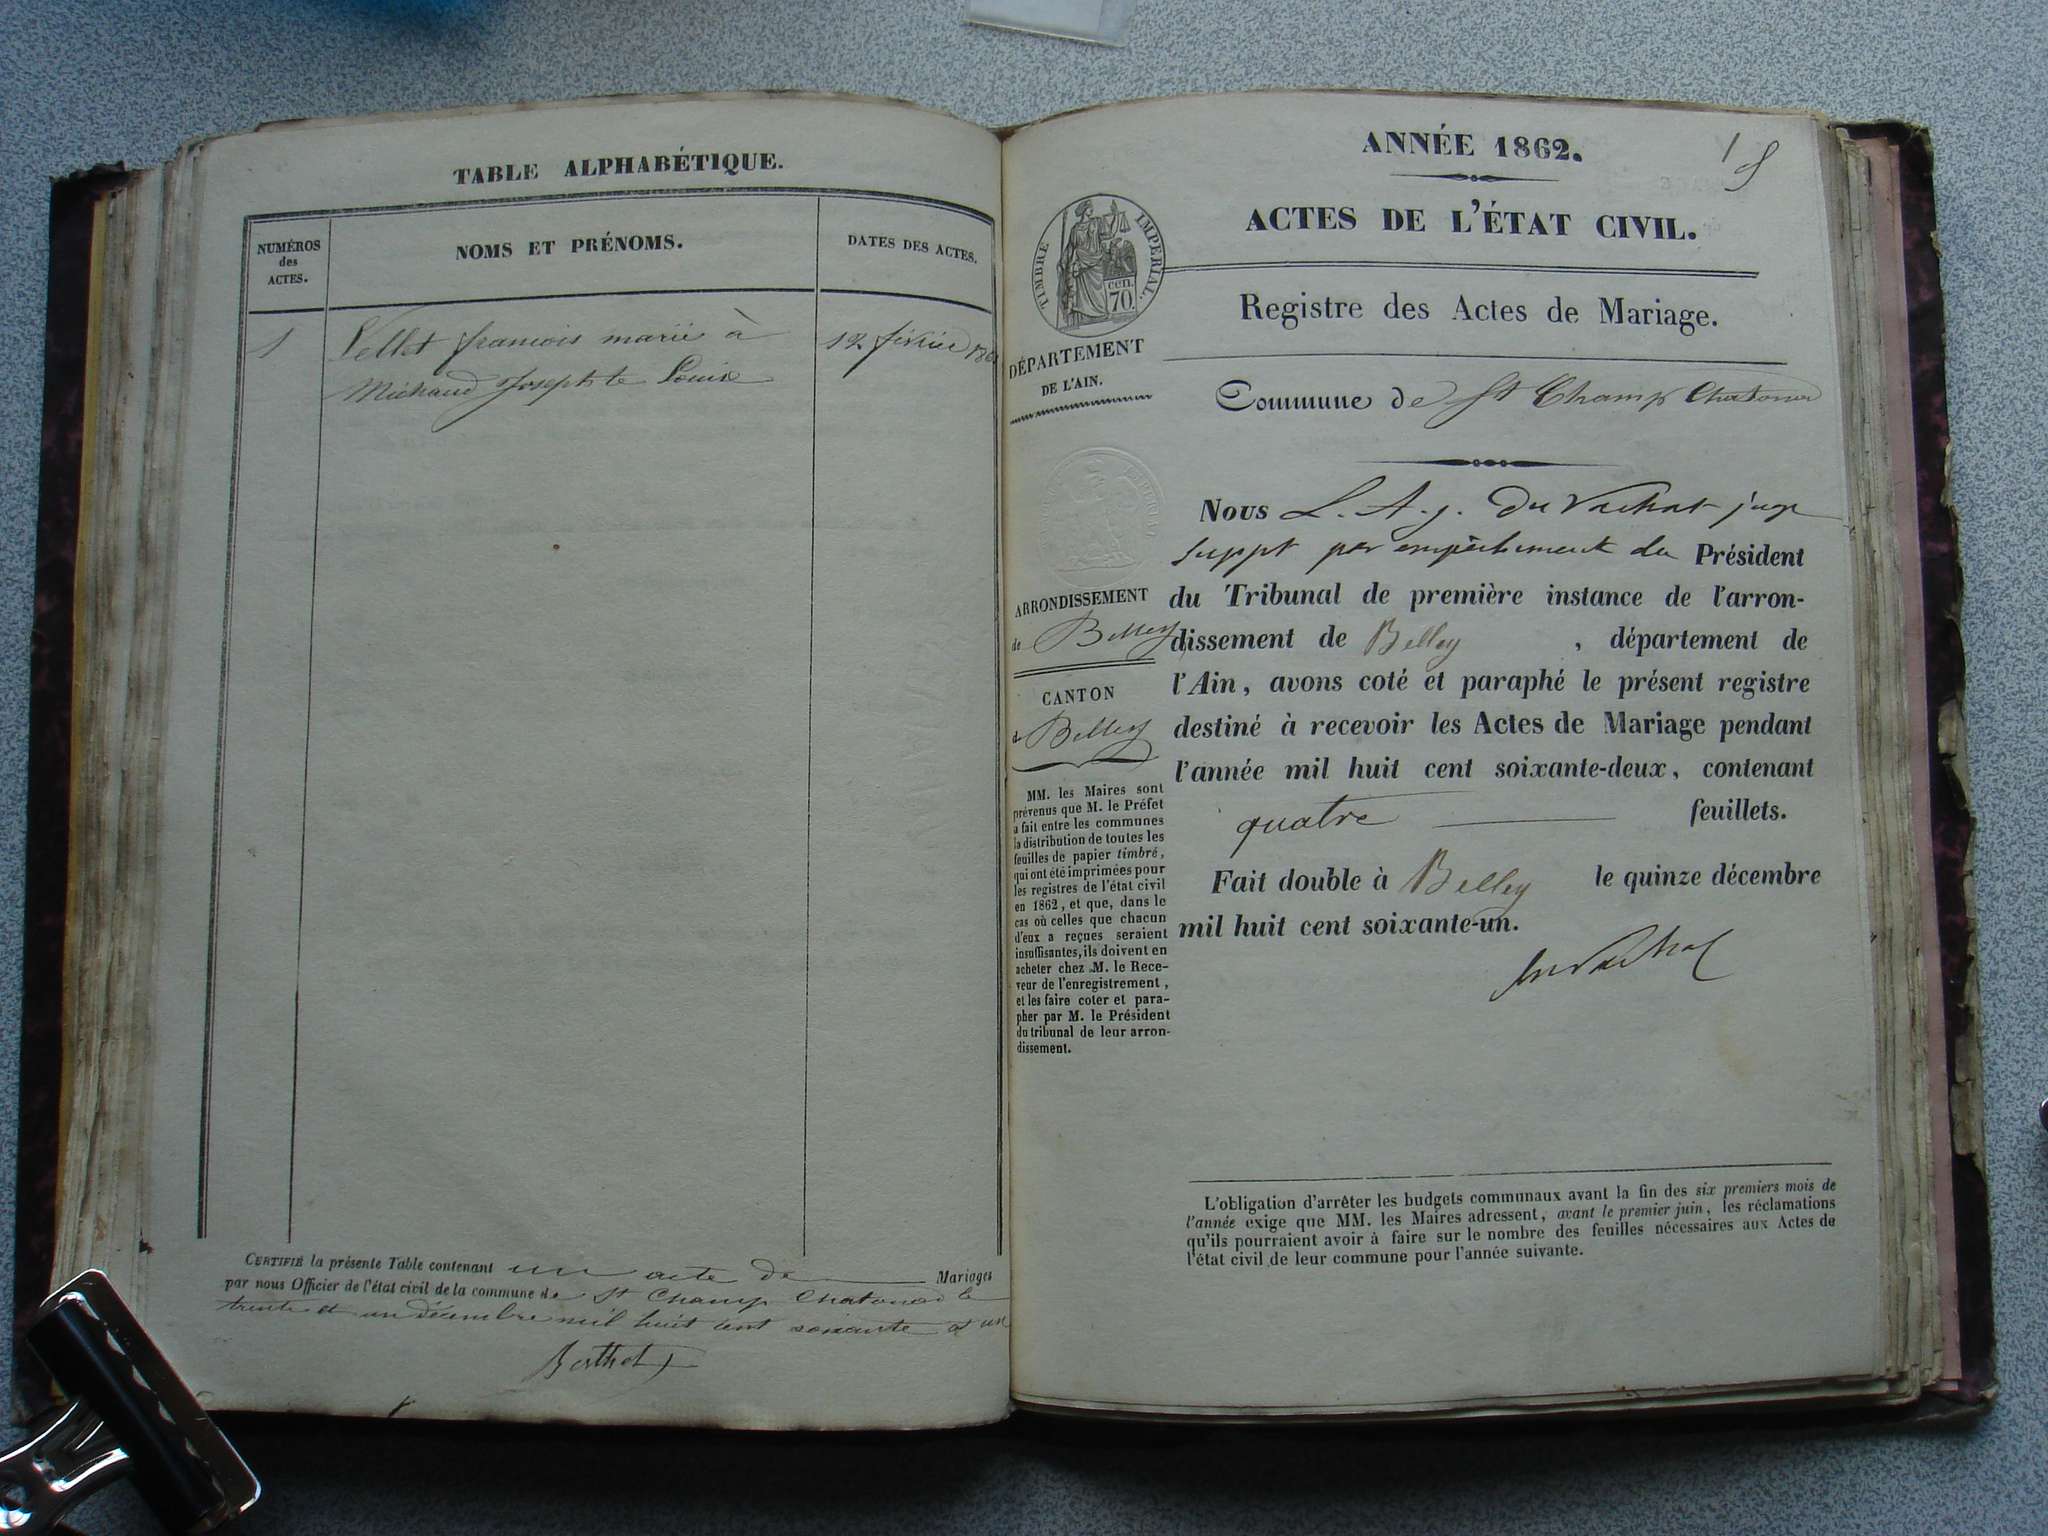 TABLE ALPHABÉTIQUE.
NUMÉROS
des
ACTES.
NOMS ET PRÉNOMS.
DATES DES ACTES.
1
Pellet francois marié à
12 février
Michaud Josephte Louise
CERTIFIÉ la présente Table contenant un acte de Mariages
par nous Officier de l'état civil de la commune de St Champ Chatonod le
trente et un décembre mil huit cent soixante et un
Berthet
ANNÉE 1862.
1
ACTES DE L'ÉTAT CIVIL.
TIMBRE IMPERIAL.
cen.
70
Registre des Actes de Mariage.
DÉPARTEMENT
DE L'AIN.
Commune de St Champ Chatonod
ARRONDISSEMENT
de Belley
CANTON
Belley
MM. les Maires sont
prévenus que M. le Préfet
a fait entre les communes
la distribution de toutes les
feuilles de papier timbré,
qui ont été imprimées pour
les registres de l'état civil
en 1862, et que, dans le
cas où celles que chacun
d'eux a reçues seraient
insuffisantes, ils doivent en
acheter chez M. le Rece-
veur de l'enregistrement,
et les faire coter et para-
pher par M. le Président
du tribunal de leur arron-
dissement.
Nous L. A. j. du Vachat juge
suppt par empêchement du Président
du Tribunal de première instance de l'arron-
dissement de Belley , département de
l'Ain, avons coté et paraphé le présent registre
destiné à recevoir les Actes de Mariage pendant
l'année mil huit cent soixante-deux, contenant
quatre feuillets.
Fait double à Belley le quinze décembre
mil huit cent soixante-un.
du Vachat
L'obligation d'arrêter les budgets communaux avant la fin des six premiers mois de
l'année exige que MM. les Maires adressent, avant le premier juin, les réclamations
qu'ils pourraient avoir à faire sur le nombre des feuilles nécessaires aux Actes de
l'état civil de leur commune pour l'année suivante.